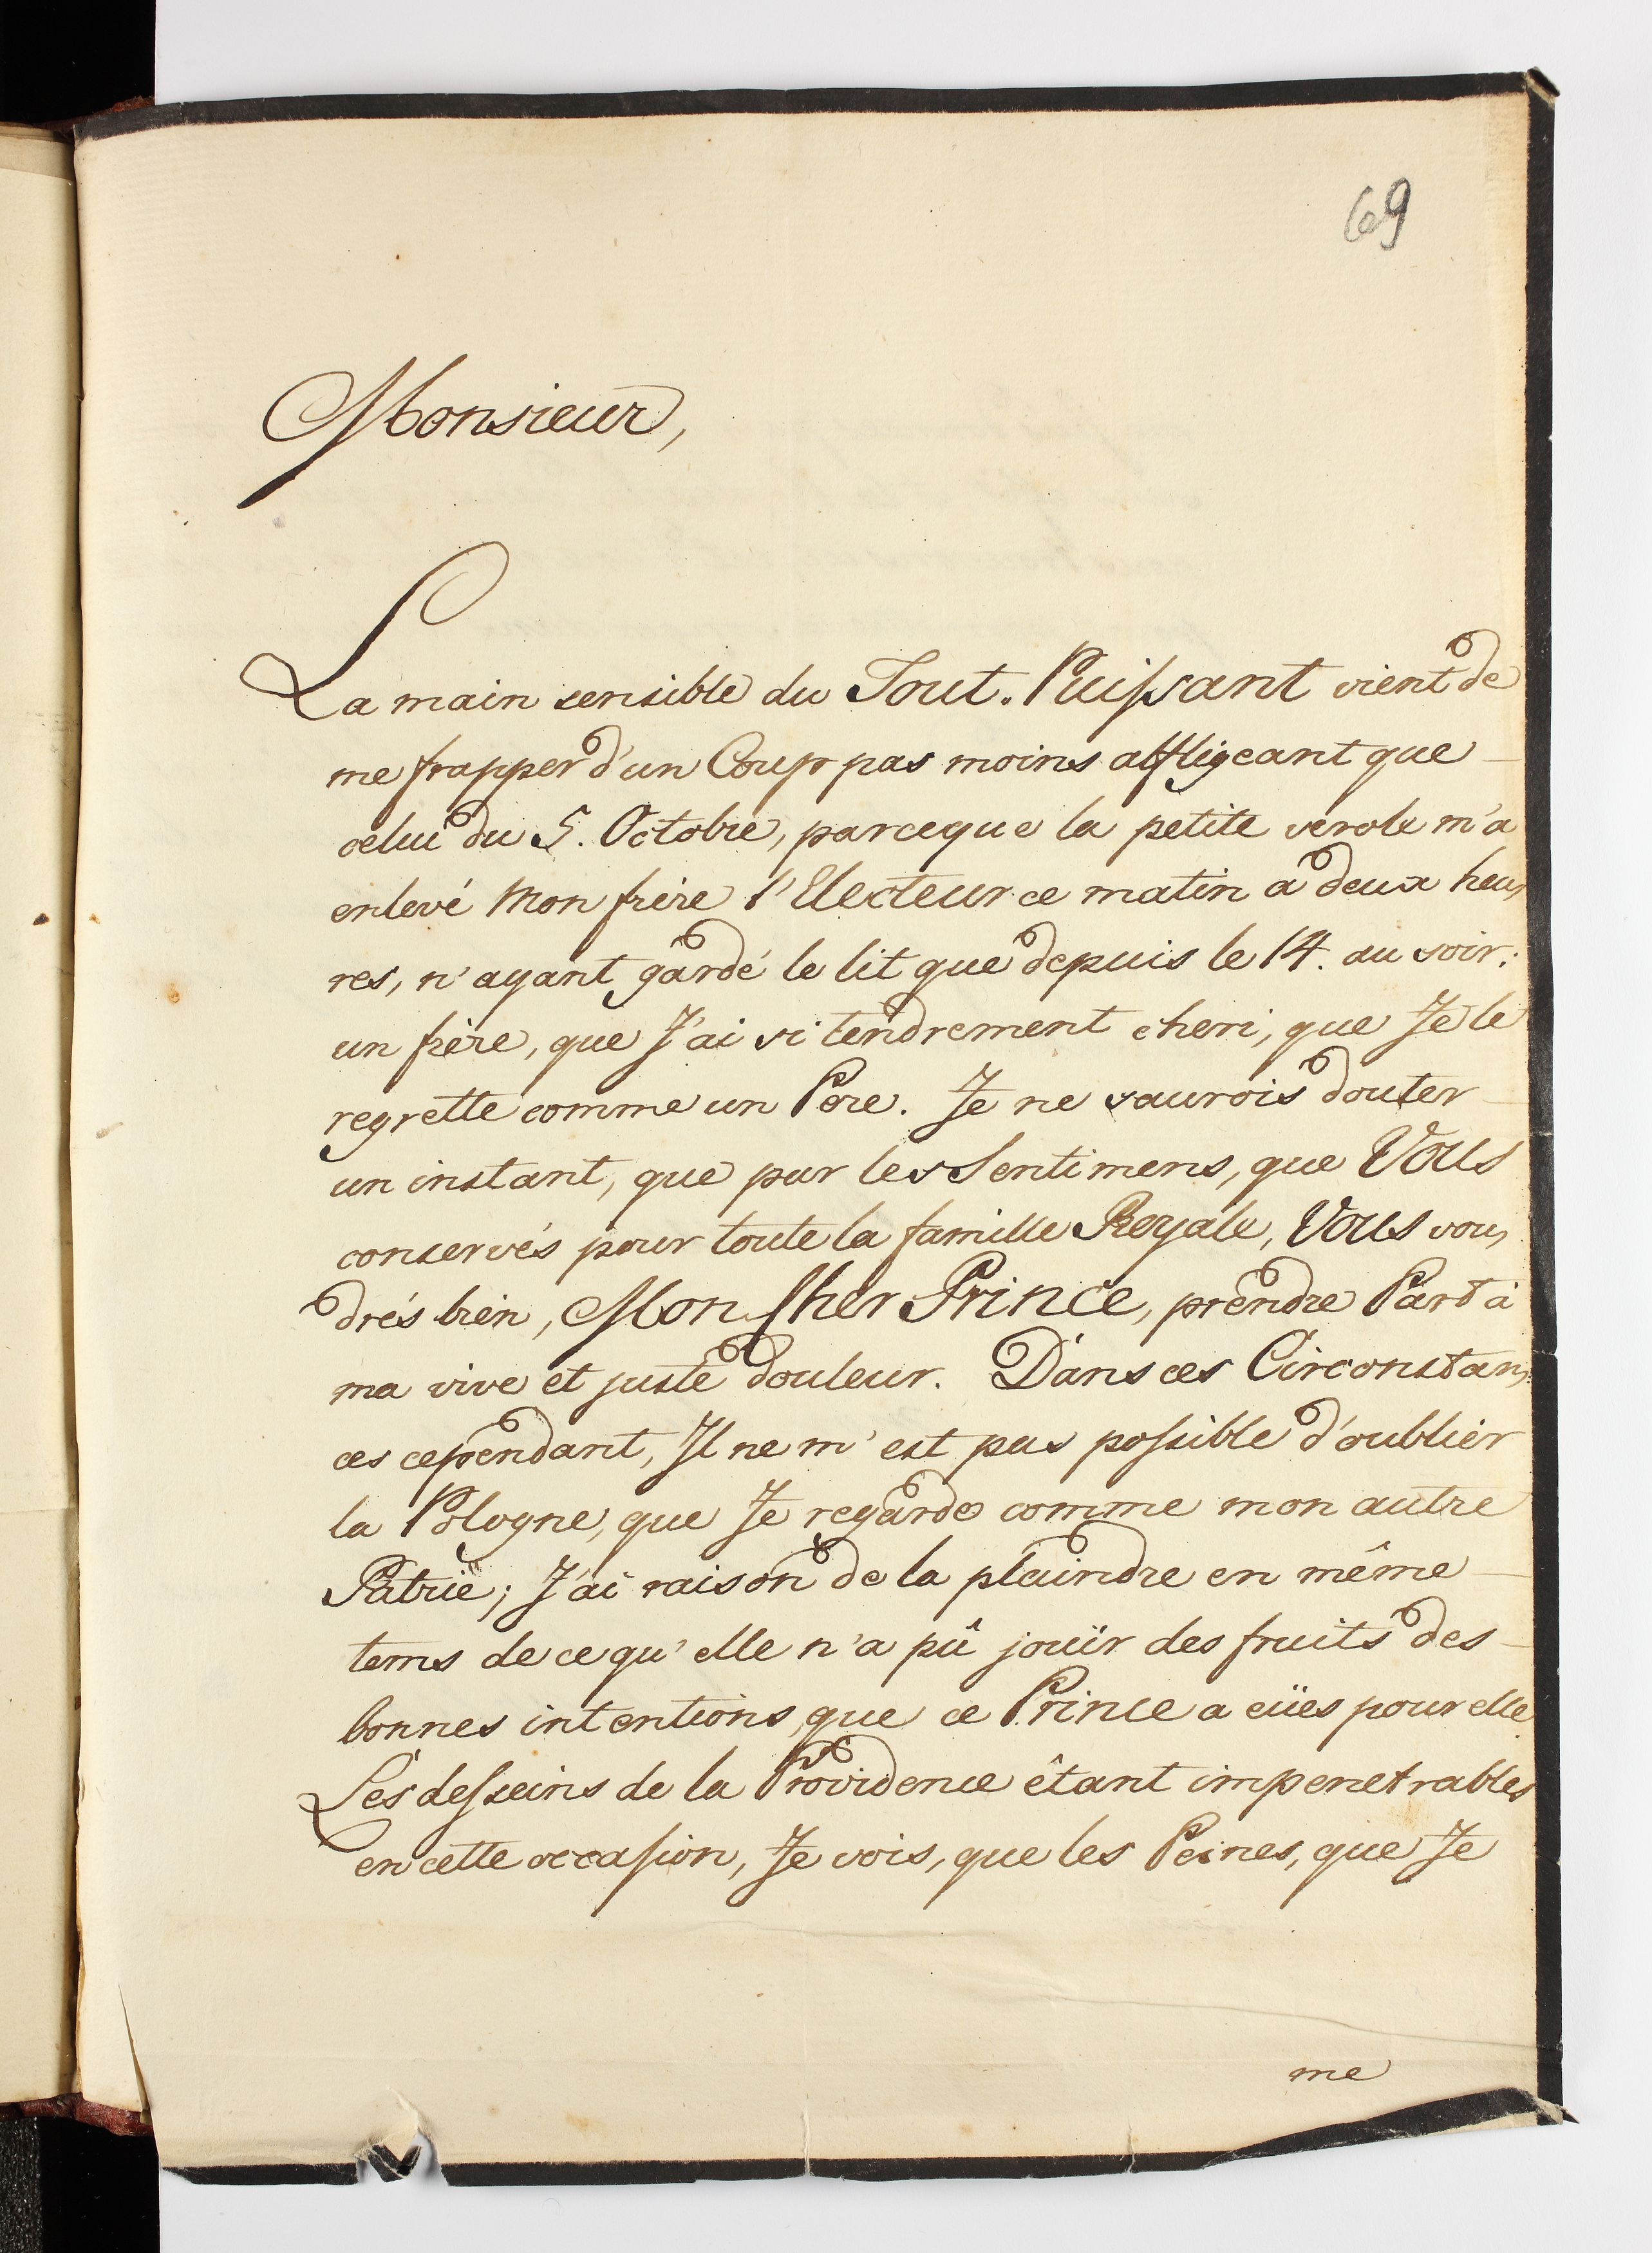 69
Monsieur,
La main sensible du Tout-Puissant vient de
me frapper d'un Coup pas moins affligeant que
celui du 5. Octobre, parceque la petite verole m'a
enlevé Mon frère l'Electeur ce matin à deux heu,
res, n'ayant gardé le lit que depuis le 14. au soir:
un frère, que J'ai si tendrement cheri, que Je le
regrette comme un Pere. Je ne saurois douter
un instant, que par les Sentimens, que Vous
conservés pour toute la famille Royale, Vous vou,
drés bien, Mon Cher Prince, prendre Part à
ma vive et juste douleur. Dans ces Circonstan,
ces cependant, Il ne m'est pas possible d'oublier
la Pologne, que Je regarde comme mon autre
Patrie; J'ai raison de la plaindre en même
tems de ce qu'elle n'a pû jouïr des fruits des
bonnes intentions que ce Prince a eües pour elle
Les desseins de la Providence étant impenetrables
en cette occasion, Je vois, que les Peines, que Je
me